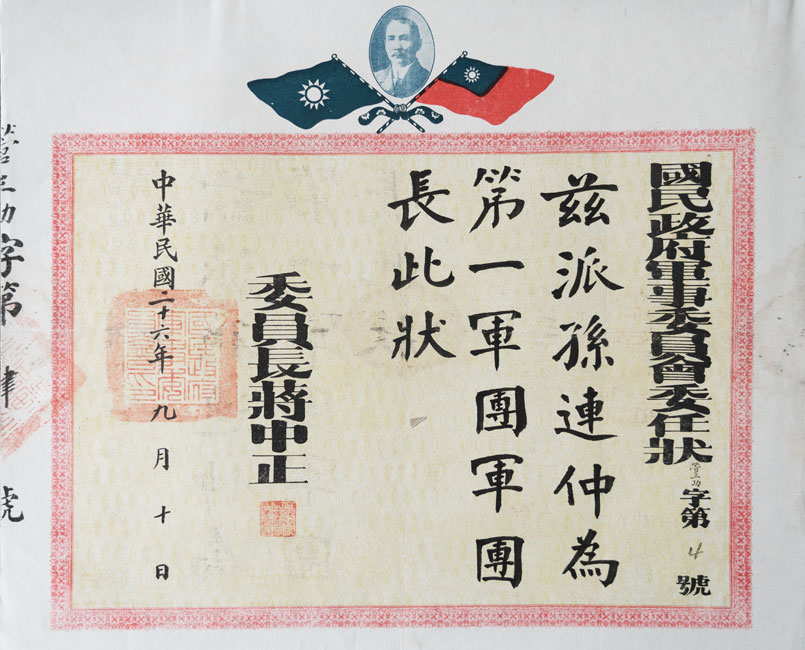 國民政府軍事委員會委任狀
管三功字第4號
兹派孫連仲為
第一軍團軍團
長此狀
委員長蔣中正
中華民國二十六年九月十日
字第 肆 號